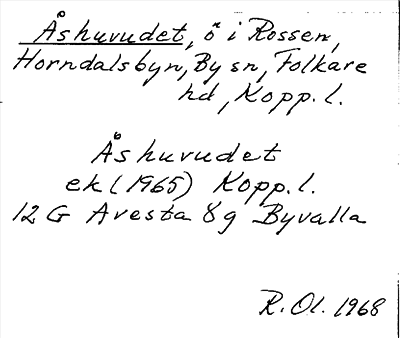 Åshuvudet, ö i Rossen,
Horndalsbyn, By sn, Folkare
hd, Kopp. l.
Åshuvudet
ek (1965) Kopp. l.
12 G Avesta 8g Byvalla
R. Ol. 1968